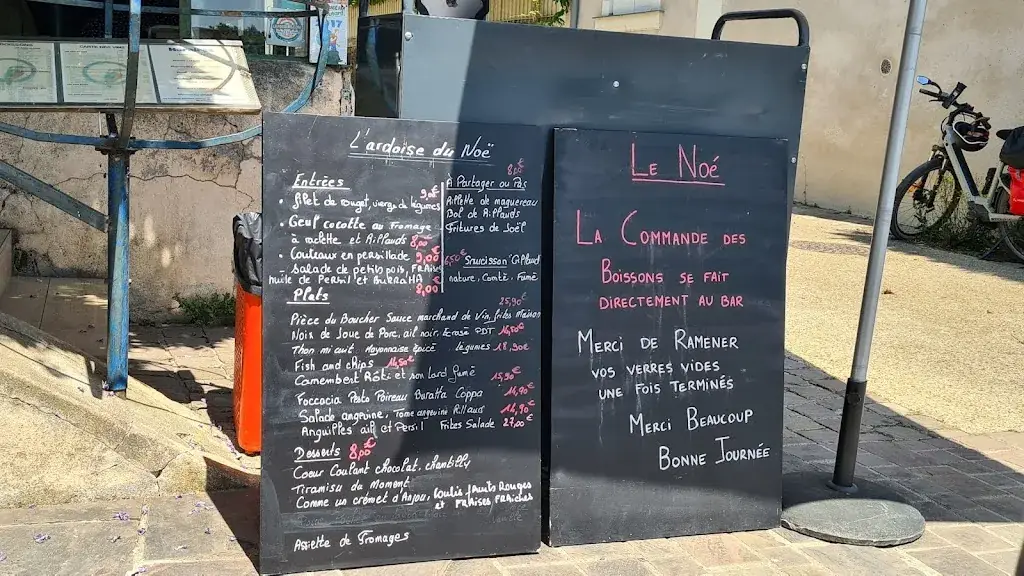 L'ardoise du Noë
Entrées
• filet de rouget, vierge de légumes 9,00€
• Oeuf cocotte au fromage
à raclette et Rillauds 8,00
• Couteaux en persillade 9,00€
• Salade de petits pois, FRAISES
huile de PERSIL et BURRATA 8,00€
A Partager ou Pas
8,00€
Assiette de maquereau
Bol de Rillauds
Fritures de Joël
Saucisson
nature, Comté, Fumé
Plats
25,90€
Pièce du Boucher Sauce marchand de Vin, frites Maison
Noix de Joue de Porc, ail noir, Ecrasé PDT 16,50€
Thon mi cuit Mayonnaise épicé légumes 18,90€
Fish and chips 16,50€
Camembert Rôti et son lard fumé 15,90€
Foccacia Pesto Poireau Buratta Coppa 14,90€
Salade angevine, Tome angevine Rillaud 14,90€
Anguilles ail et Persil Frites Salade 27,00€
Desserts 8,00€
Coeur Coulant chocolat, chantilly
Tiramisu du Moment
Comme un crémet d'Anjou, coulis fruits Rouges
et FRAISES FRAICHES
Assiette de Fromages
LE NOÉ
LA COMMANDE DES
BOISSONS SE FAIT
DIRECTEMENT AU BAR
MERCI DE RAMENER
VOS VERRES VIDES
UNE FOIS TERMINÉS
MERCI BEAUCOUP
BONNE JOURNÉE